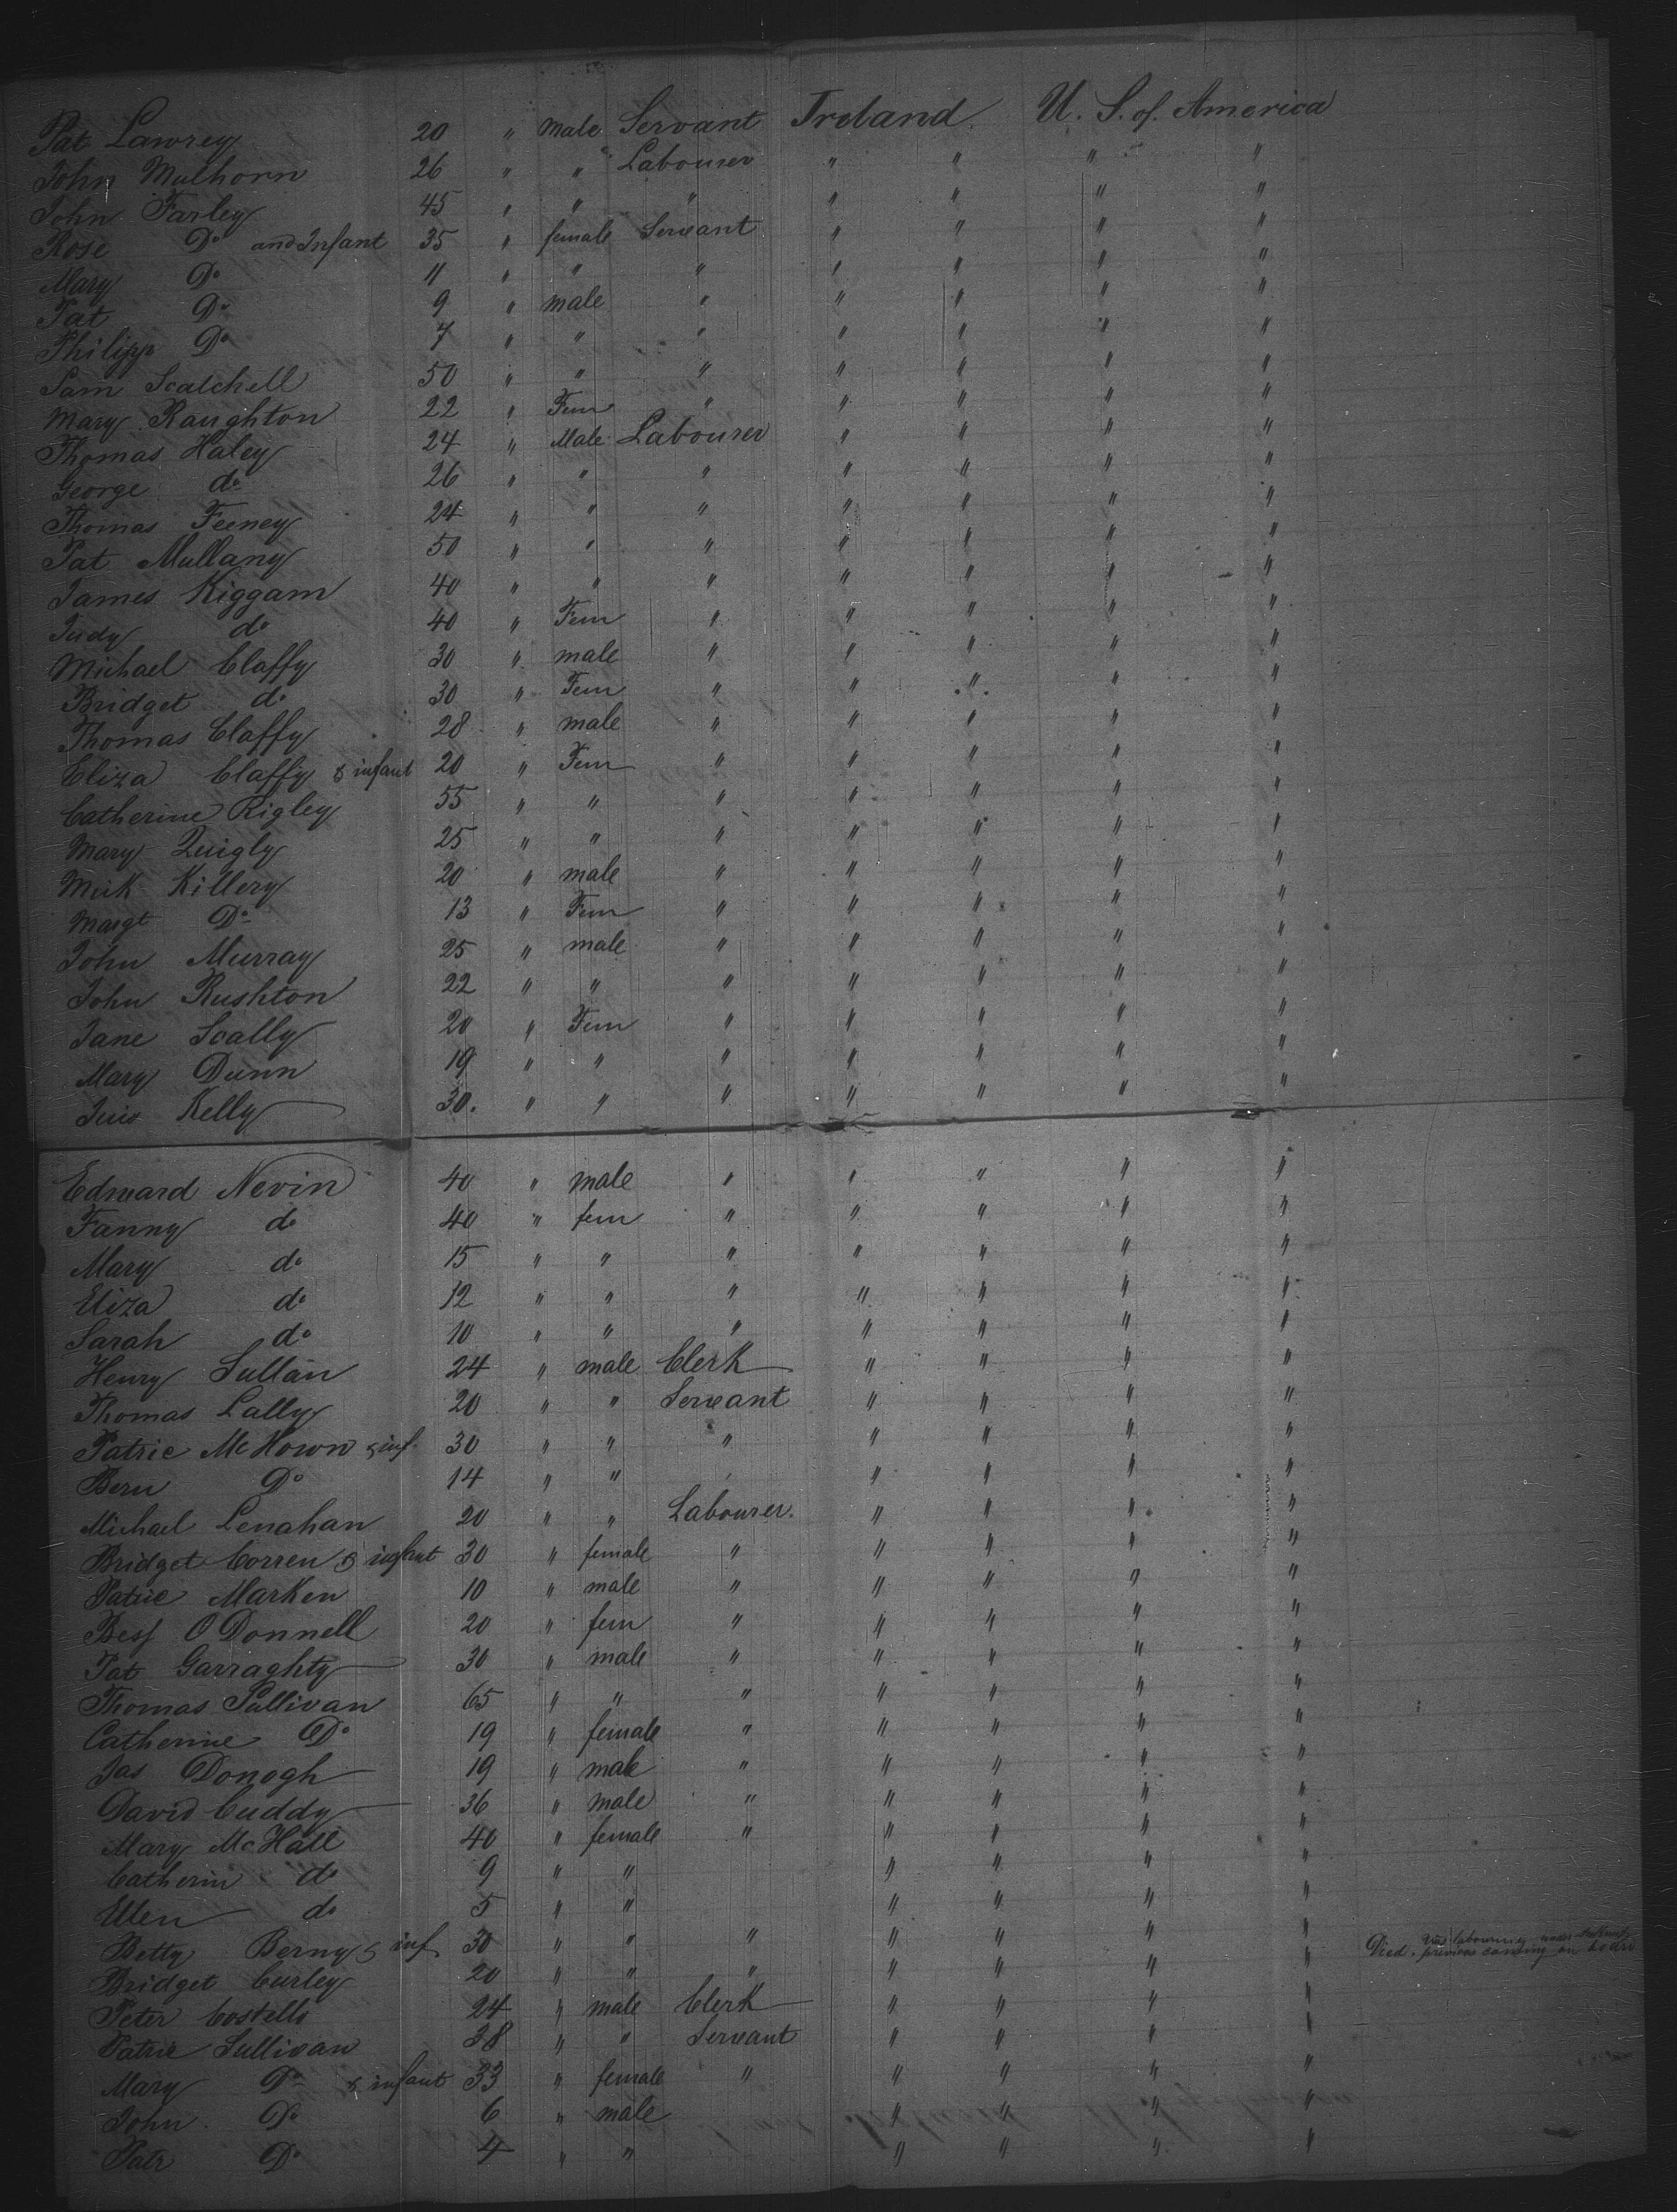 Pat Lawrey 20 " Male Servant Ireland U. S. of America
John Mulhorn 26 " " Labourer " " " "
John Farley 45 " " " " " " "
Rose Do and Infant 35 " female Servant " " " "
Mary Do 11 " " " " " " "
Pat Do 9 " male " " " " "
Philipp Do 7 " " " " " " "
Sam Scatchell 50 " " " " " " "
Mary Raughton 22 " Fem " " " " "
Thomas Haley 24 " Male Labourer " " " "
George do 26 " " " " " " "
Thomas Feeney 24 " " " " " " "
Pat Mullany 50 " " " " " " "
James Kiggam 40 " " " " " " "
Judy do 40 " Fem " " " " "
Michael Claffy 30 " male " " " " "
Bridget do 30 " Fem " " " " "
Thomas Claffy 28 " male " " " " "
Eliza Claffy & infant 20 " Fem " " " " "
Catherine Rigley 55 " " " " " " "
Mary Quigly 25 " " " " " " "
Mick Killery 20 " male " " " " "
Margt Do 13 " Fem " " " " "
John Murray 25 " male " " " " "
John Rushton 22 " " " " " " "
Jane Scally 20 " Fem " " " " "
Mary Dunn 19 " " " " " " "
Kelly 30. " " " " " " "
Edward Nevin 40 " male " " " " "
Fanny do 40 " fem " " " " "
Mary do 15 " " " " " " "
Eliza do 12 " " " " " " "
Sarah do 10 " " " " " " "
Henry Sullan 24 " male Clerk " " " "
Thomas Lally 20 " " Servant " " " "
Patric McKown & inf. 30 " " " " " " "
Bern Do 14 " " " " " " "
Michael Lenahan 20 " " Labourer. " " " "
Bridget Corren & infant 30 " female " " " " "
Patric Marken 10 " male " " " " "
Bess O Donnell 20 " fem " " " " "
Pat Garraghty 30 " male " " " " "
Thomas Sullivan 65 " " " " " " "
Catherine Do 19 " female " " " " "
Jas Donogh 19 " male " " " " "
David Cuddy 36 " male " " " " "
Mary McHall 40 " female " " " " "
Catherin do 9 " " " " " "
Ellen do 5 " " " " " "
Betty Berny & inf 30 " " " " " " "
Bridget Curley 20 " " " " " " " Died. was labouring under previous coming on board
Peter Costello 24 " male Clerk " " " "
Patric Sullivan 38 " " Servant " " " "
Mary Do & infant 33 " female " " " " "
John Do 6 " male " " " "
Patr Do 4 " " " " " "